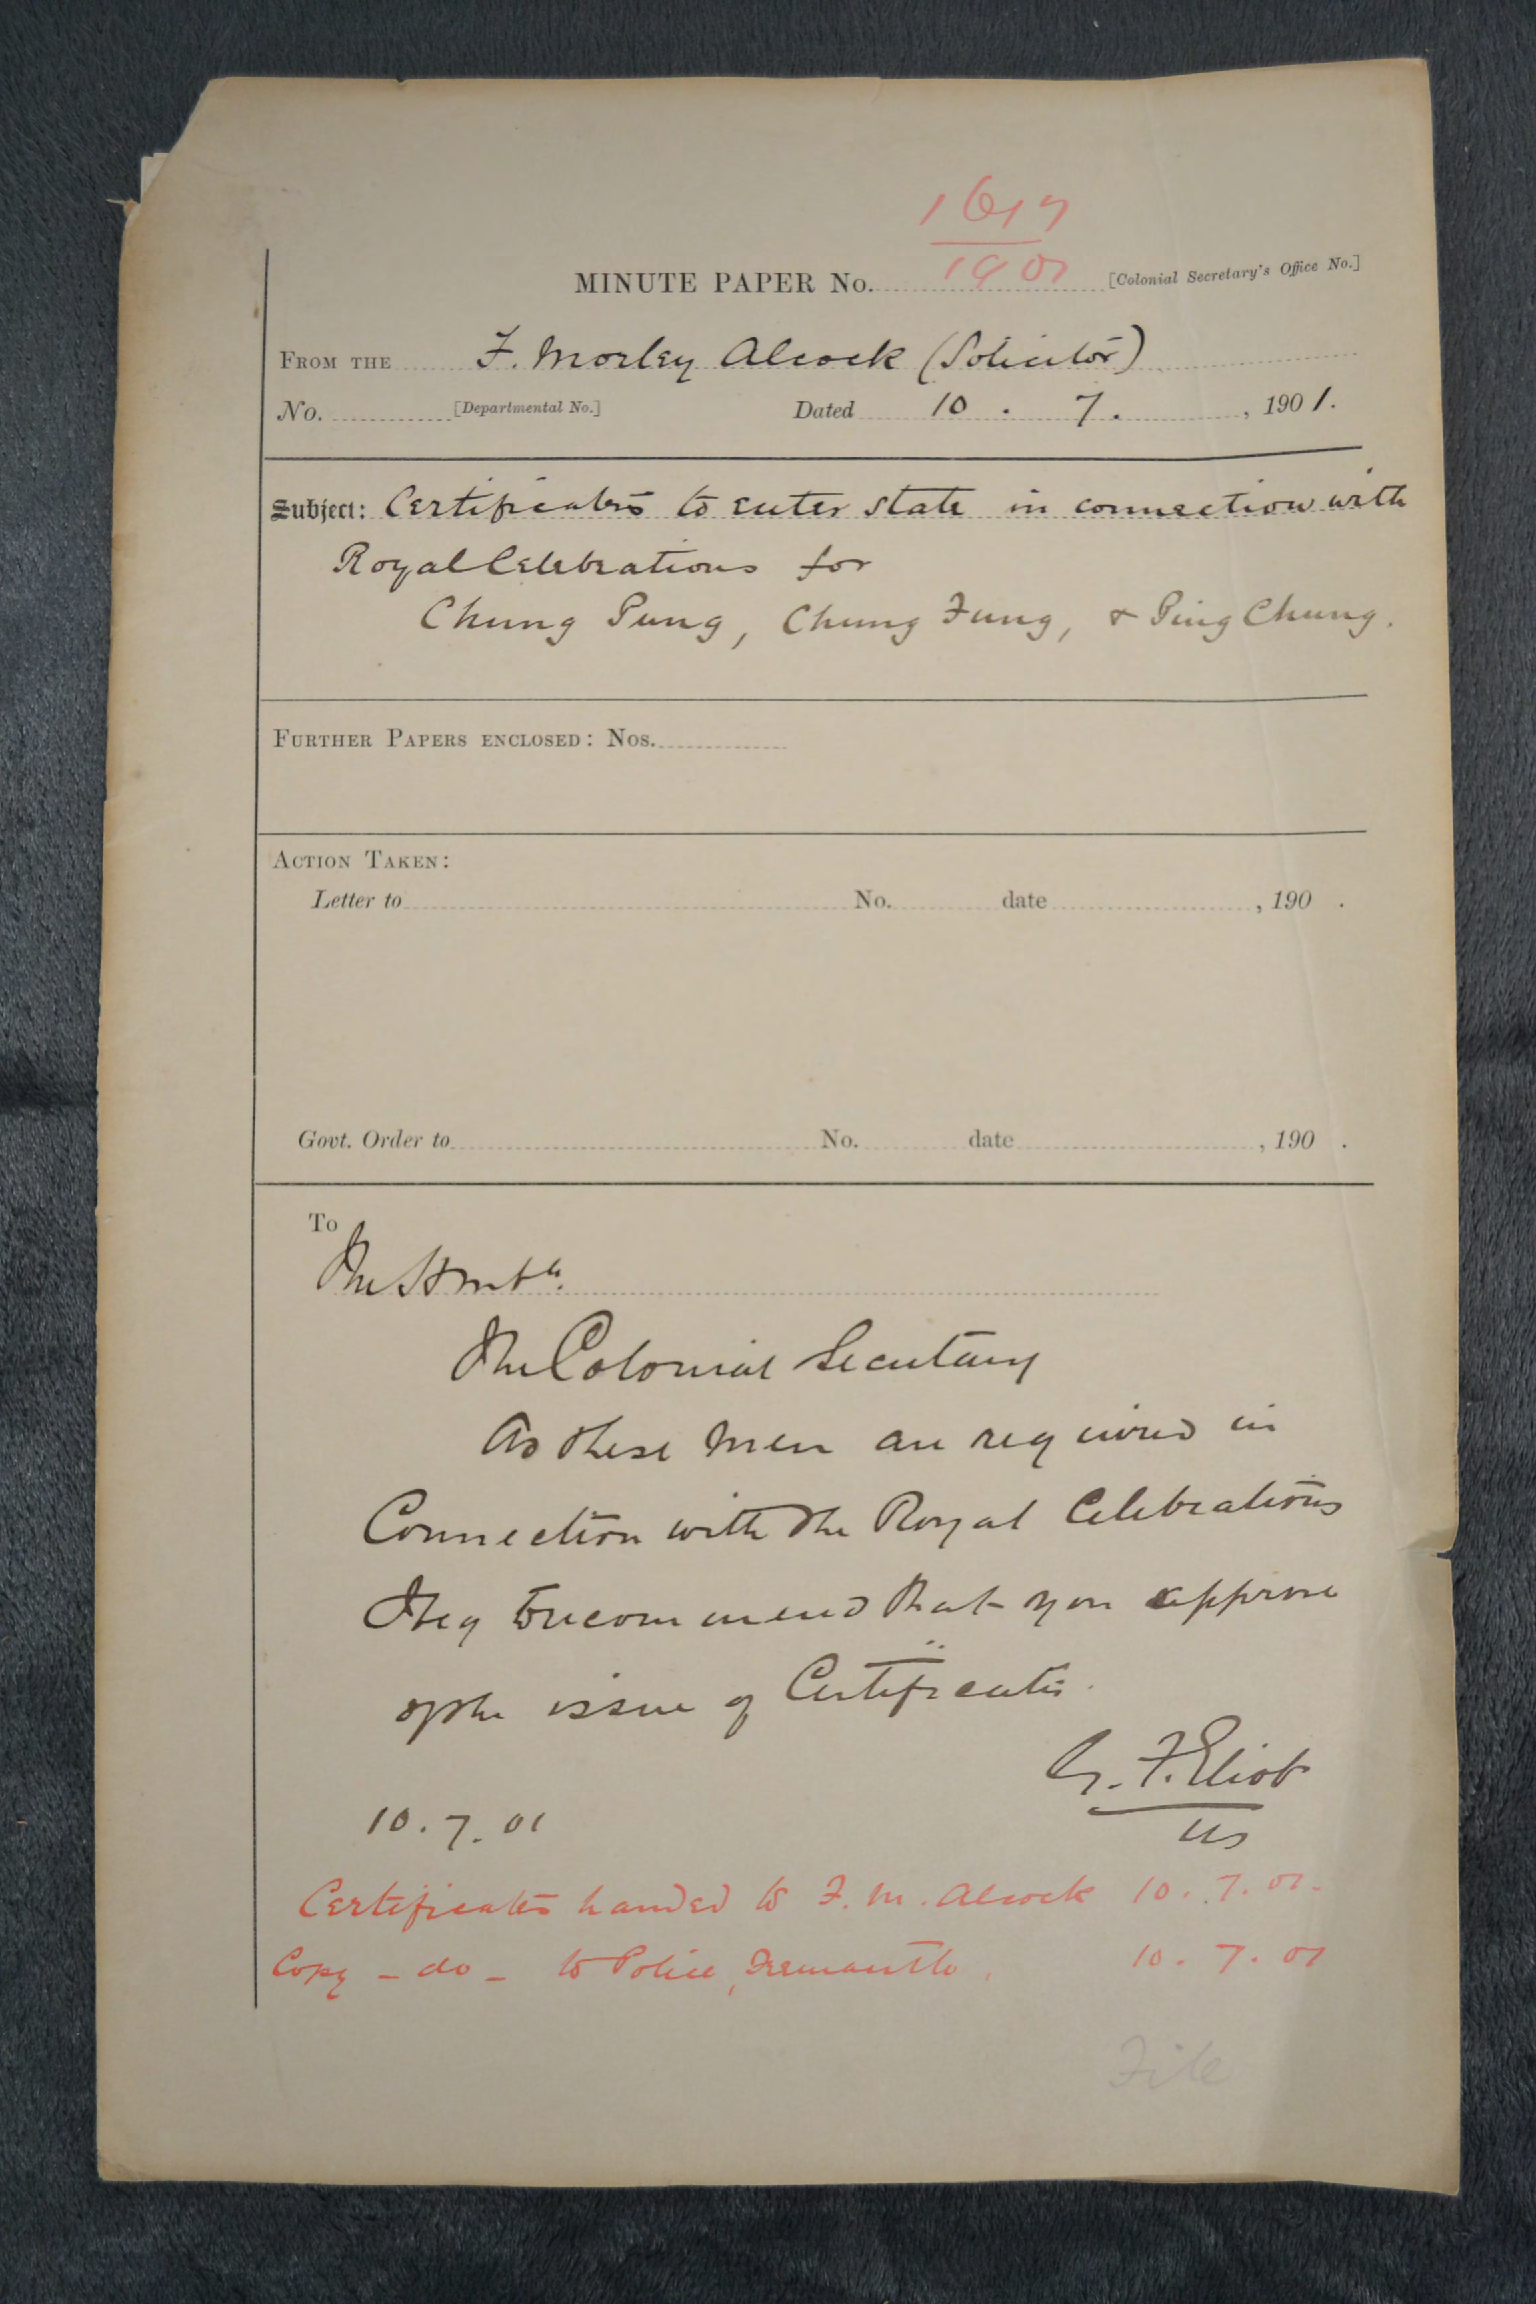 1617
1901
MINUTE PAPER No. [Colonial Secretary's Office No.]
FROM THE F. Morley Alcock (Solicitor)
No. [Departmental No.] Dated 10 . 7. , 1901.
Subject: Certificates to enter state in connection with
Royal Celebrations for
Chung Pung, Chung Fung, & Ping Chung.
FURTHER PAPERS ENCLOSED: Nos.
ACTION TAKEN:
Letter to No. date , 190 .
Govt. Order to No. date , 190 .
To
The Honble.
The Colonial Secretary
As these men are required in
Connection with the Royal Celebrations
I beg to recommend that you approve
of the issue of Certificates.
G. F. Eliot
US
10.7.01
Certificates handed to F. M. Alcock 10.7.01.
Copy - do - to Police, Fremantle. 10.7.01
File